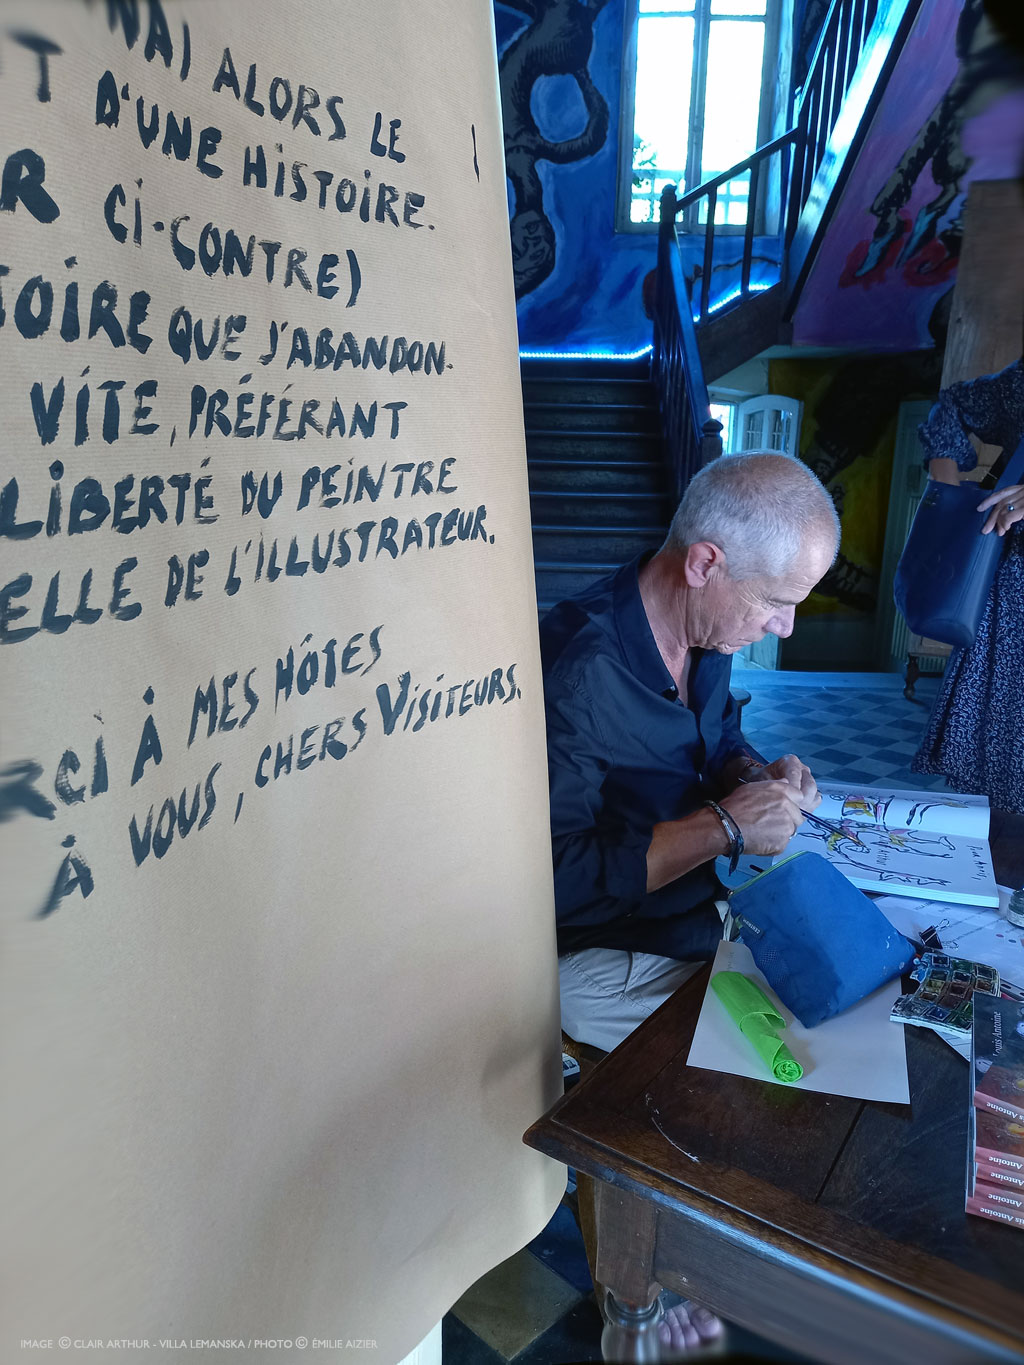 NAI ALORS LE
T D'UNE HISTOIRE.
R CI-CONTRE)
TOIRE QUE J'ABANDON-
VITE, PRÉFÉRANT
LIBERTÉ DU PEINTRE
ELLE DE L'ILLUSTRATEUR.
RCI À MES HÔTES
À VOUS, CHERS VISITEURS.
Arthur
Louis Antoine
is Antoine
Antoine
Antoine
uis Antoine
IMAGE © CLAIR ARTHUR - VILLA LEMANSKA / PHOTO © ÉMILIE AIZIER